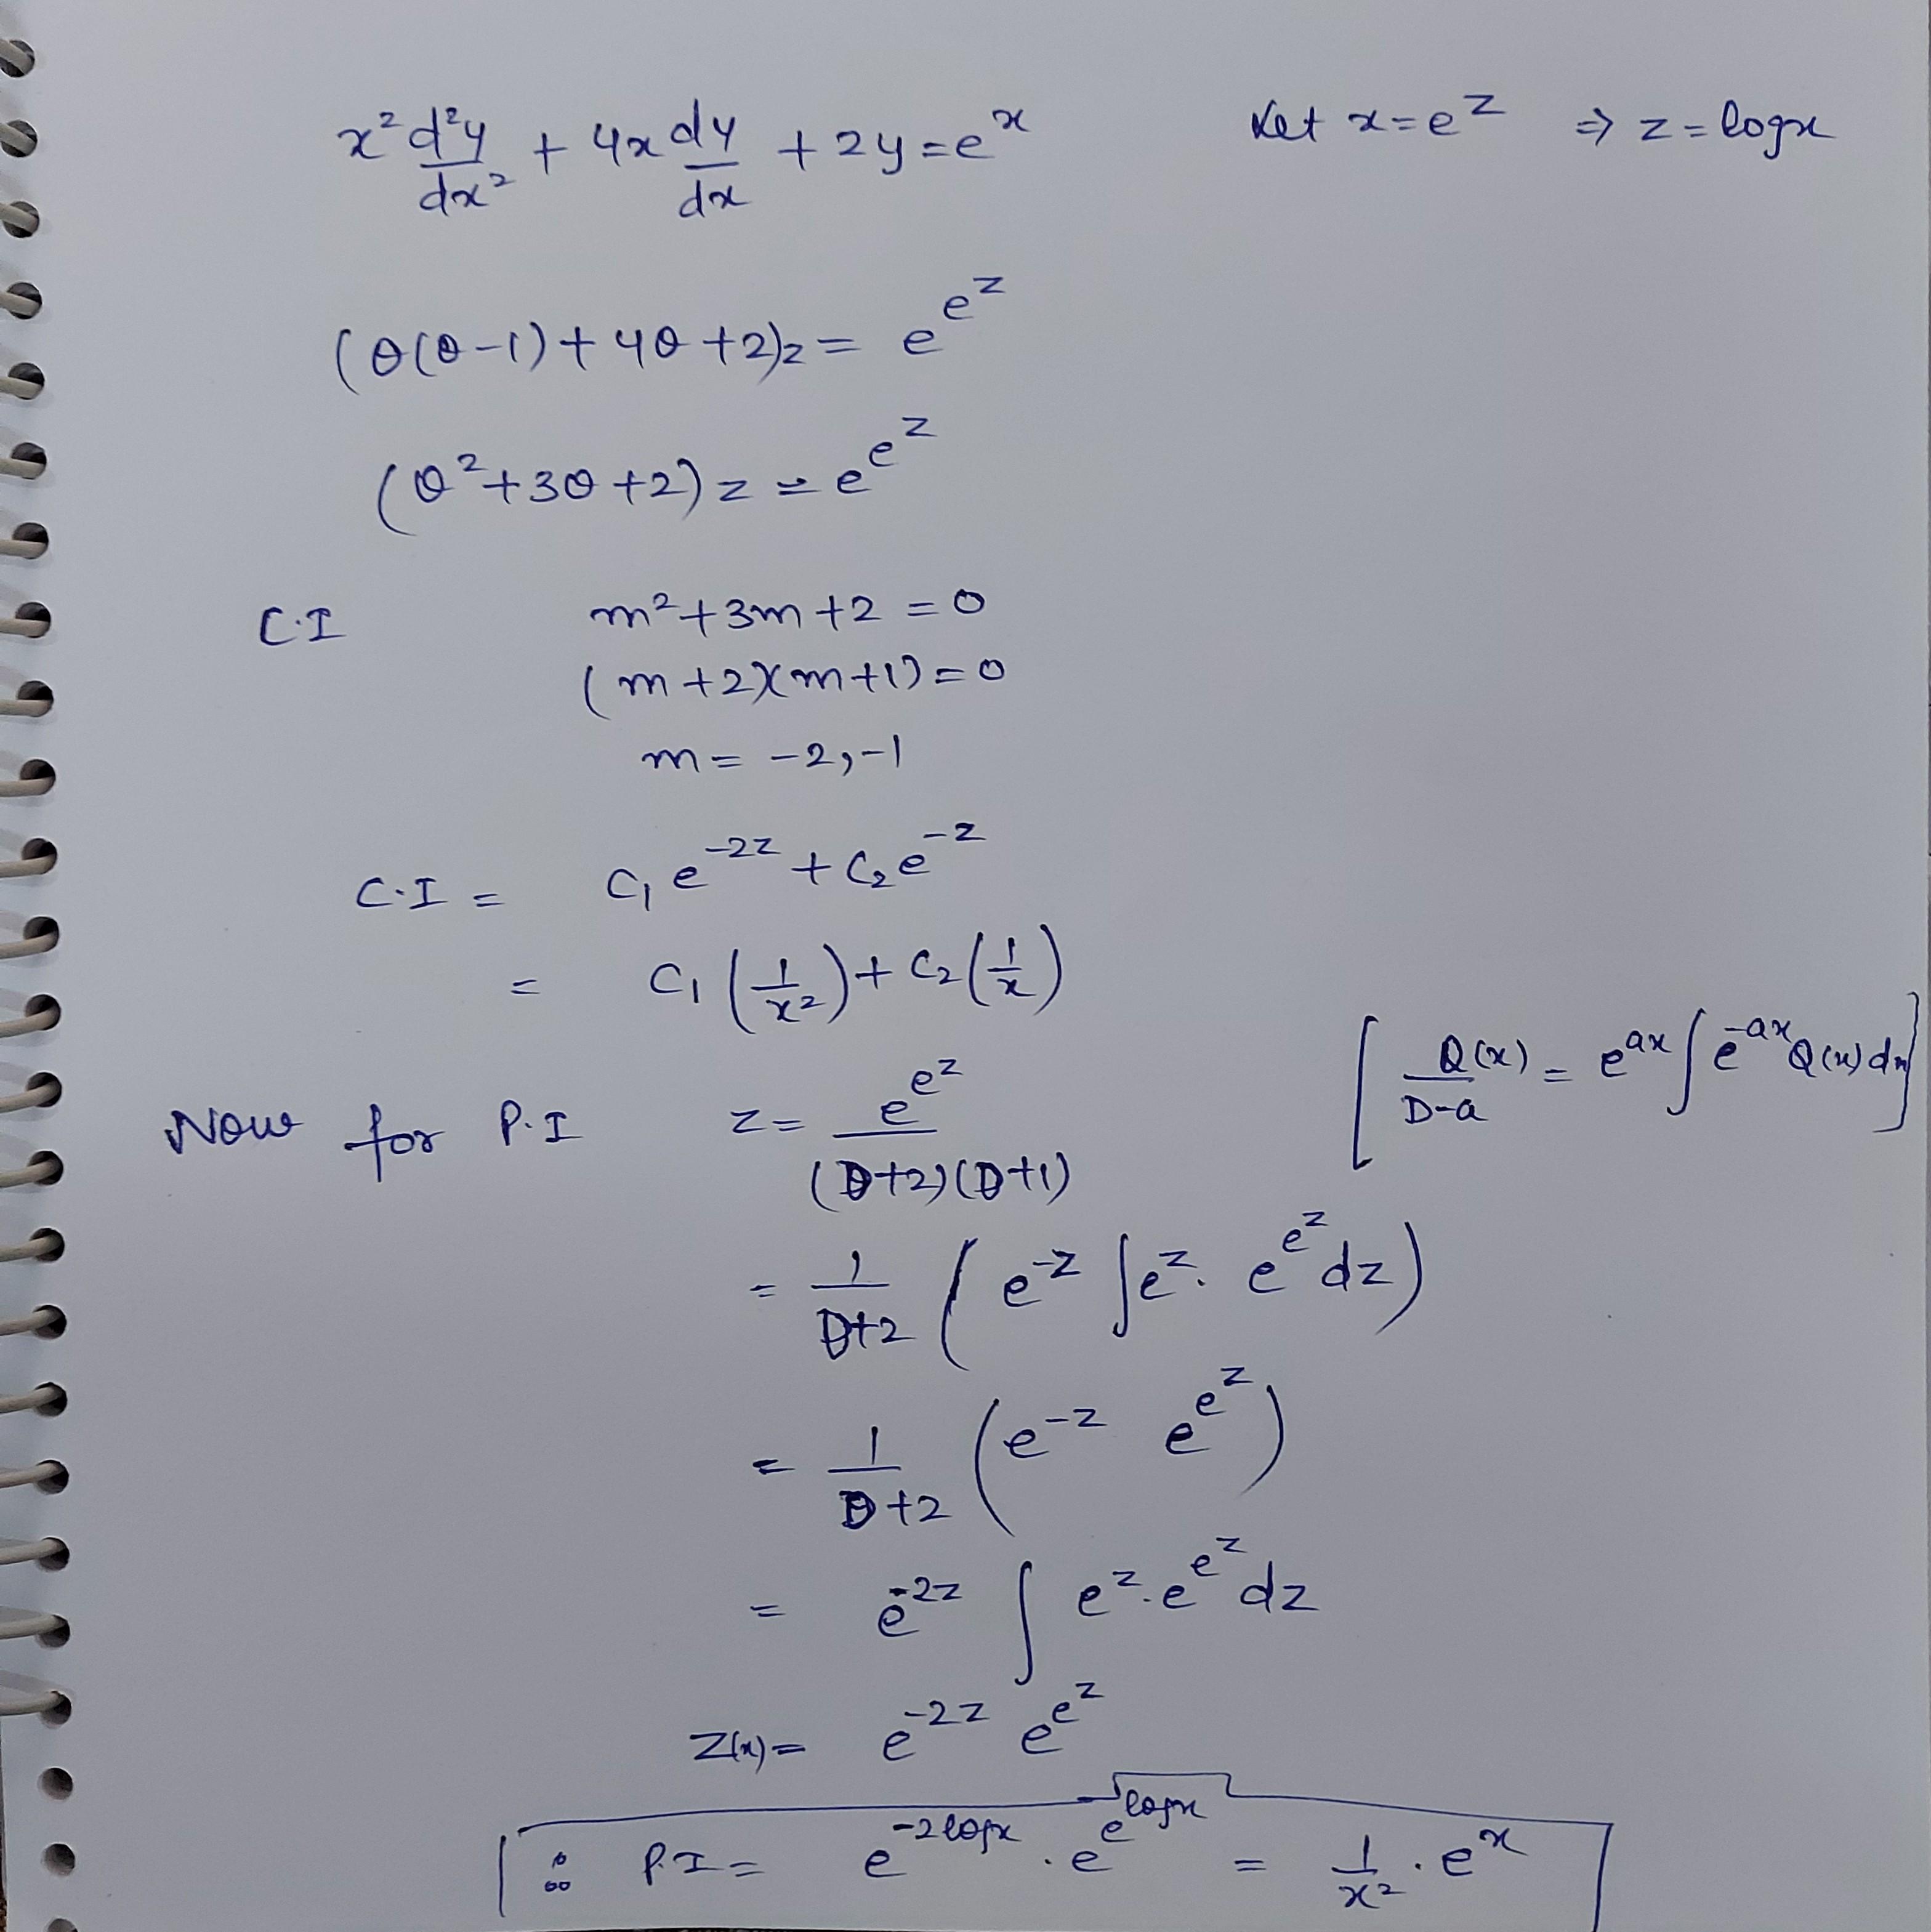 x² d²y/dx² + 4x dy/dx + 2y = eˣ    Let x = e^z ⇒ z = logx
(θ(θ-1) + 4θ + 2)z = e^(e^z)
(θ² + 3θ + 2) z = e^(e^z)
C.I    m² + 3m + 2 = 0
(m+2)(m+1) = 0
m = -2, -1
C.I = C₁ e^(-2z) + C₂ e^(-z)
= C₁ (1/x²) + C₂ (1/x)
Now for P.I    z = e^(e^z) / (D+2)(D+1)    [ Q(x)/(D-a) = e^(ax) ∫ e^(-ax) Q(x) dx ]
= 1/(D+2) ( e^(-z) ∫ e^z . e^(e^z) dz )
= 1/(D+2) ( e^(-z) e^(e^z) )
= e^(-2z) ∫ e^z . e^(e^z) dz
Z(x) = e^(-2z) e^(e^z)
∴ P.I = e^(-2logx) . e^(e^(logx)) = 1/x² . eˣ